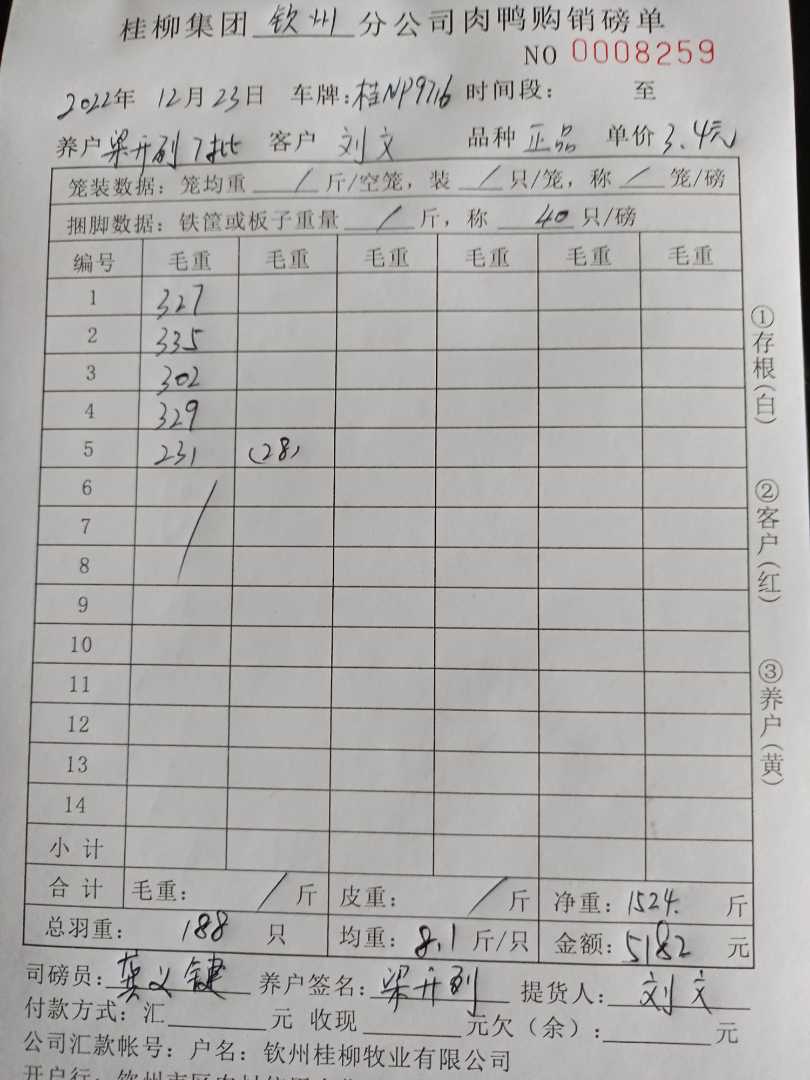 桂柳集团 钦州 分公司肉鸭购销磅单
NO 0008259
2022年 12月23日 车牌:桂NP9716 时间段: 至
养户 梁开烈 7批 客户 刘文 品种 正品 单价 3.4元
笼装数据: 笼均重 / 斤/空笼, 装 / 只/笼, 称 / 笼/磅
捆脚数据: 铁筐或板子重量 / 斤, 称 40 只/磅
编号 毛重 毛重 毛重 毛重 毛重 毛重
1 327
2 335
3 302
4 329
5 231 (28)
6
7
8
9
10
11
12
13
14
小计
合计 毛重: / 斤 皮重: / 斤 净重: 1524. 斤
总羽重: 188 只 均重: 8.1 斤/只 金额: 5182 元
司磅员: 龚义键 养户签名: 梁开烈 提货人: 刘文
付款方式: 汇 元 收现 元欠(余): 元
公司汇款帐号: 户名: 钦州桂柳牧业有限公司
开户行:
①存根(白)
②客户(红)
③养户(黄)